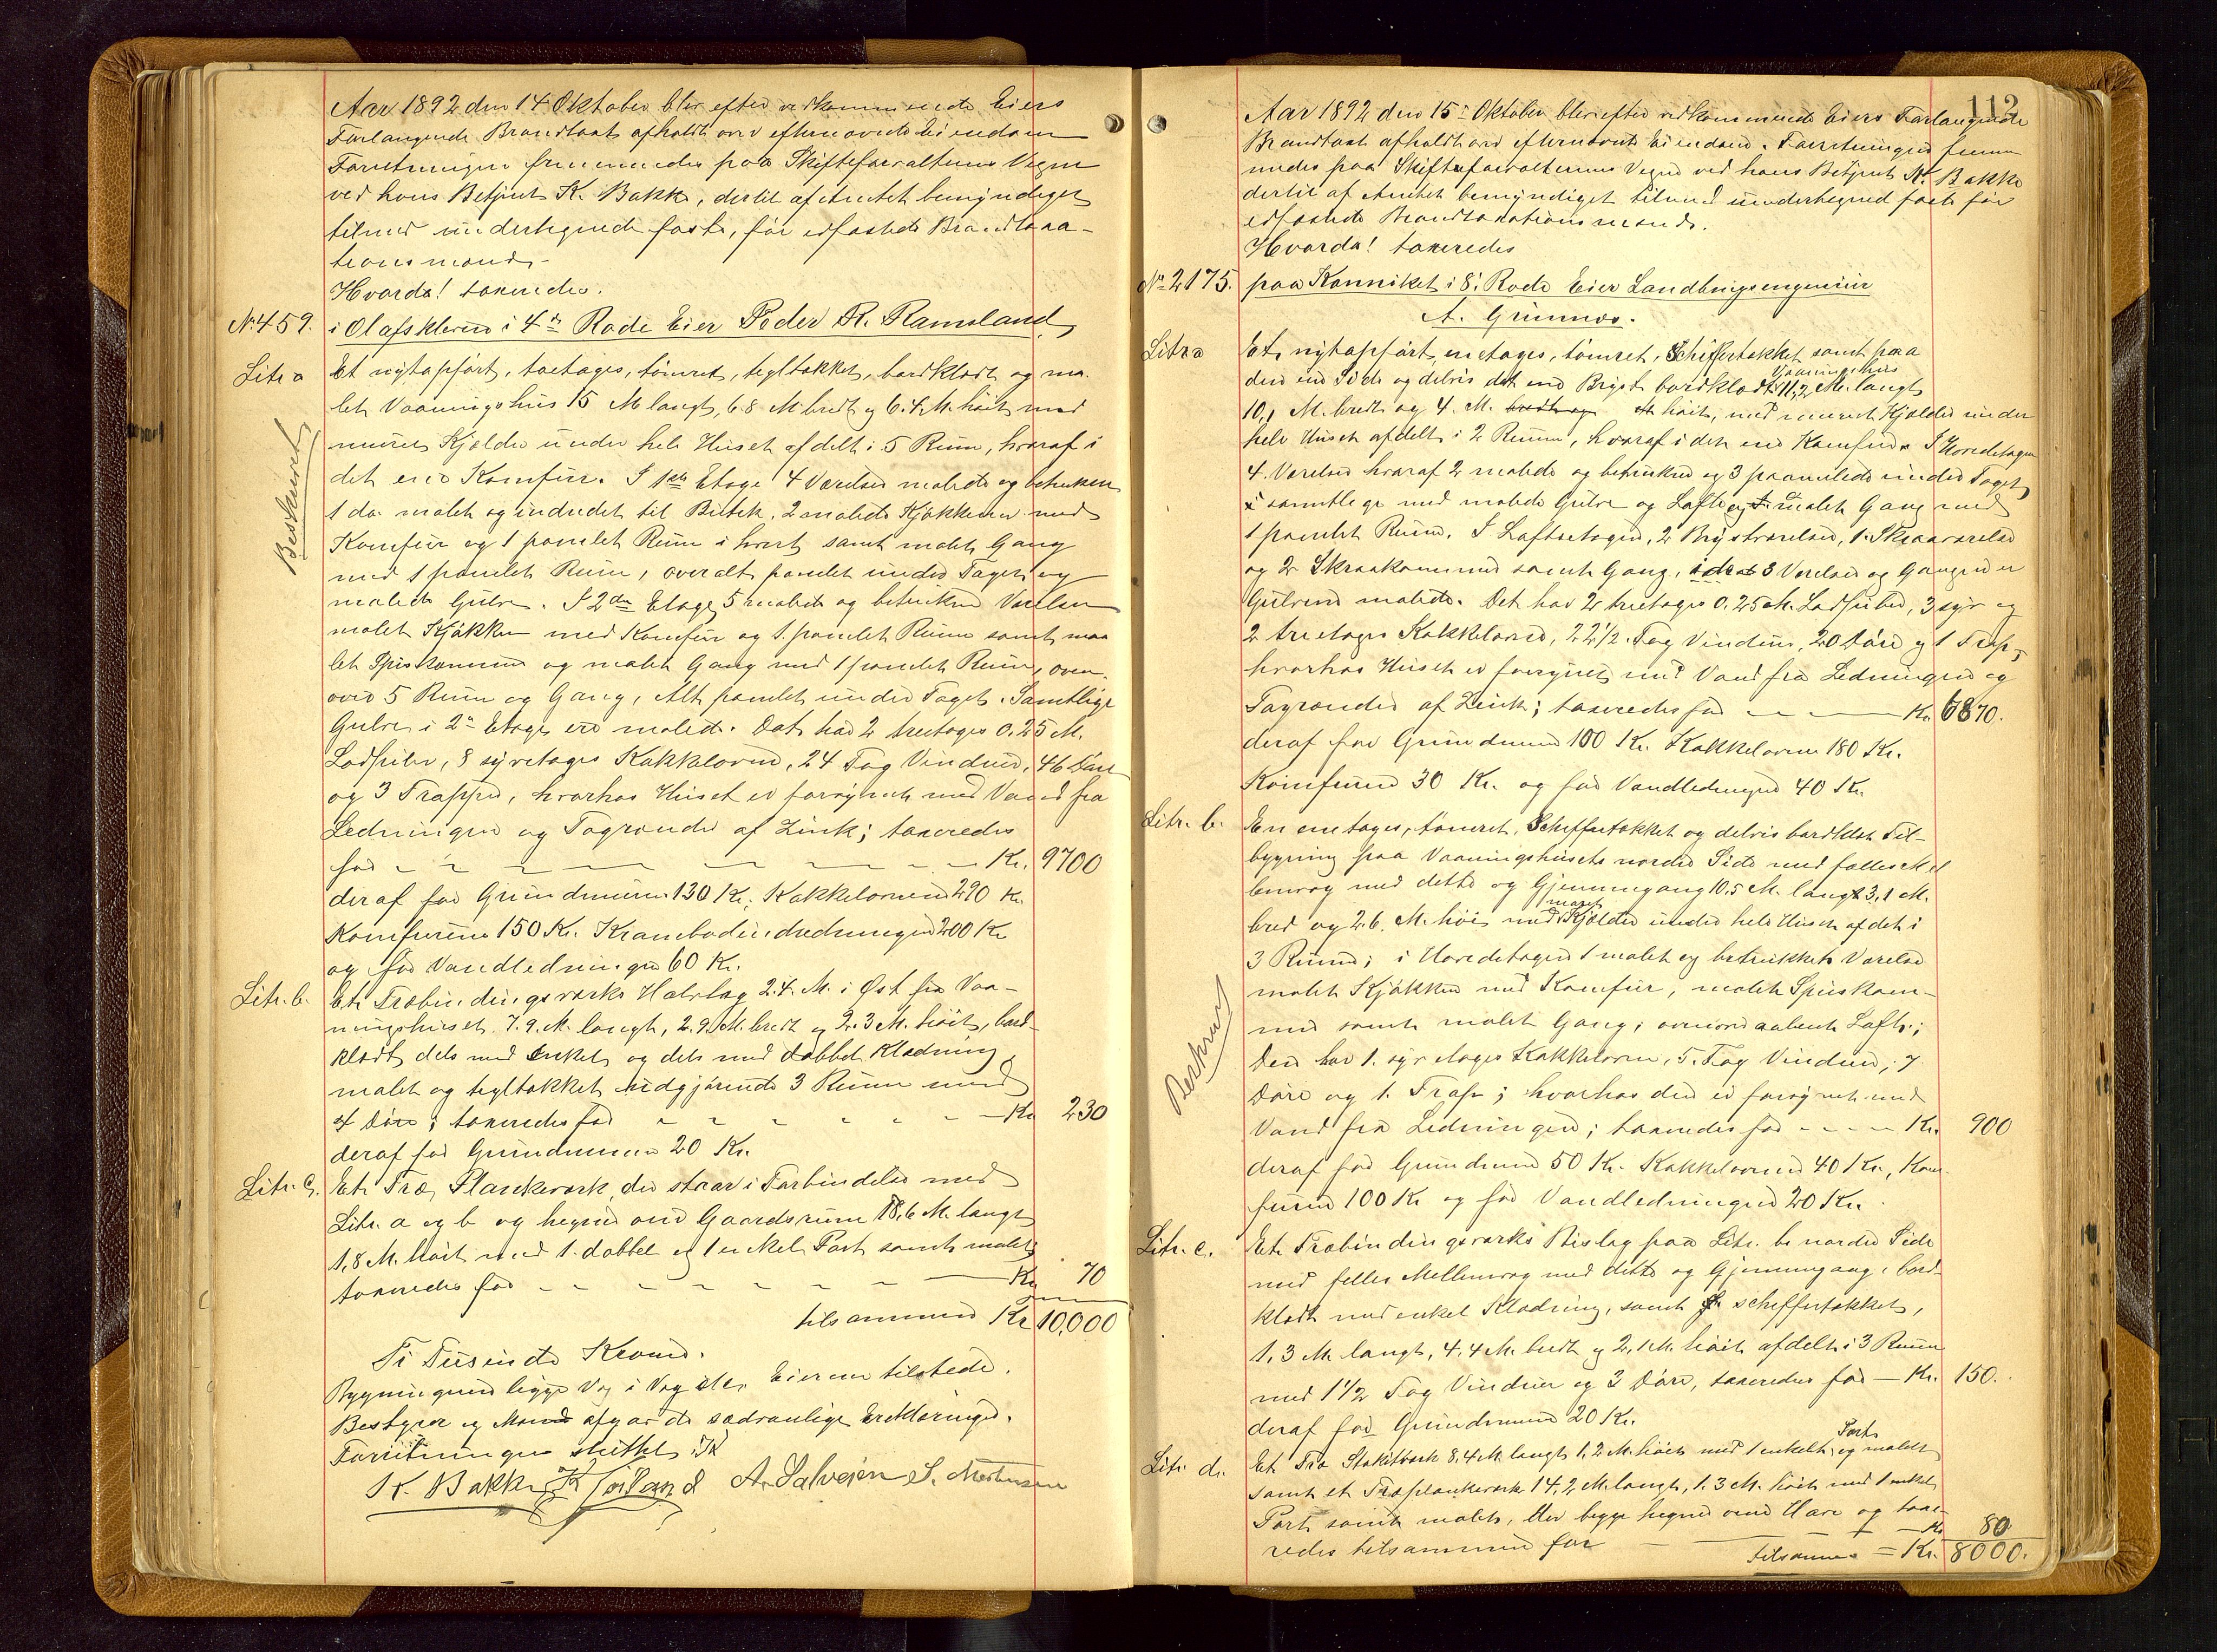 Aar 1892 den 14 Oktober blev efter vedkommende Eiers
Forlangende Brandtaxt afholdt over efternævnte Eiendom
Forretningen fremmedes paa Skifteforvalterens Vegne
ved hans Betjent K. Bakke, dertil af Amtet bemyndiget
tilmed undertegnede faste, før edfæstede Brandtaxa-
tionsmænd.
Hvorda! taxeredes.
No 459. i Olafskleven i 4de Rode Eier Peder R. Ramsland,
Litr a Et nyopført, toetages, tømret, tegltækket, bordklædt og ma-
let Vaaningshus 15 M langt, 6.8 M bredt og 6.4. M. høit med
muret Kjælder under hele Huset afdelt i 5 Rum, hvoraf i
det ene Komfur. I 1ste Etage 4 Værelser malede og betrukken
1 do malet og indredet til Butik, 2 malede Kjøkkener med
Komfur og 1 panelet Rum i hvert samt malet Gang
med 1 panelet Rum, overalt panelet under Taget og
malede Gulve. I 2den Etage 5 malede og betrukne Værelser
malet Kjøkken med Komfur og 1 panelet Rum samt ma
let Spiskammer og malet Gang med 1 panelet Rum, oven-
over 5 Rum og Gang, Alt panelet under Taget. Samtlige
Gulve i 2n Etage ere malede. Det har 2 treetages 0.25 M.
Lodpiber, 8 syretages Kakkelovne, 24 Fag Vinduer, 46 Døre
og 3 Trapper, hvorhos Huset er forsynet med Vand fra
Ledningen og Tagrender af Zink; taxeredes
for - - - - Kr. 9700
deraf for Grundmuren 130 Kr. Kakkelovnene 290 Kr.
Komfurene 150 Kr. Krambodindredningen 200 Kr
og for Vandledningen 60 Kr.
Litr. b. Et Træbindingsværks Halvtag 2.4. M. i Øst fra Vaa-
ningshuset. 7.9. M. langt, 2.9. M. bredt og 2.3 M. høit, bord-
klædt dels med enkel og dels med dobbel Klædning
malet og tegltækket udgjørende 3 Rum med
4 Døre; taxeredes for - - - - Kr 230
deraf for Grundmuren 20 Kr.
Litr. c. Et Træ Plankeværk, der staar i Forbindelse med
Litr. a og b og hegner om Gaardsrum 18,6 M. langt
1,8 M. høit med 1. dobbel og 1 enkel Port samt malet
taxeredes for - - - - Kr 70
tilsammen Kr 10,000
Ti Tusinde Kroner.
Bygningerne ligge Væg i Væg Eieren tilstede.
Bestyrer og Mænd afgav de sædvanlige Erklæringer.
Forretningen sluttet
K. Bakke K Joland A. Salvesen S. Mortensen
Beskrevet
112
Aar 1892 den 15de Oktober blev efter vedkommende Eiers Forlangende
Brandtaxt afholdt over efternævnte Eiendom. Forretningen frem
medes paa Skifteforvalterens Vegne ved hans Betjent K. Bakke
dertil af Amtet bemyndiget tilmed undertegnede faste før
edfæstede Brandtaxationsmænd.
Hvorda! taxeredes
No 2175. paa Kanniket i 8de Rode Eier Landbrugsingeniør
A. Grimnes.
Litr a Et nyopført, enetages, tømret, Schiffertækket samt paa
den ene Side og delvis det ene Bryst bordklædt Vaaningshus 11,2 M. langt
10,1 M. bredt og 4. M. høit, med muret Kjælder under
hele Huset afdelt i 2 Rum, hvoraf i det ene Komfur. I Hovedetagen
4. Værelser hvoraf 2 malede og betrukne og 3 panelede under Taget
samtlige med malede Gulve og Lofte og malet Gang med
1 panelet Rum. I Loftsetagen, 2 Brystværelser, 1. Skraaværelse
og 2 Skraakammer samt Gang, 3 Værelser og Gangen er
Gulvene malede. Det har 2 treetages 0.25 M. Lodpiber, 3 syr og
2 treetages Kakkelovne, 22½. Fag Vinduer, 20 Døre og 1 Trap,
hvorhos Huset er forsynet med Vand fra Ledningen og
Tagrender af Zink; taxeredes for - - Kr. 6870.
deraf for Grundmuren 100 Kr. Kakkelovne 180 Kr.
Komfuren 30 Kr. og for Vandledningen 40 Kr.
Litr. b. En enetages, tømret, Schiffertækket og delvis bordklædt Til-
bygning paa Vaaningshusets nordre Side med fælles Mel
lemvæg med dette og Gjennemgang 10,5 M. langt 3,1 M.
bred og 2.6. M. høi med muret Kjælder under hele Huset afdelt i
3 Rum; i Hovedetagen 1 malet og betrukket Værelse
malet Kjøkken med Komfur, malet Spiskam-
mer samt malet Gang; ovenover aabent Loft;
Den har 1. syretages Kakkelovn, 5. Fag Vinduer, 7
Døre og 1. Trap; hvorhos den er forsynet med
Vand fra Ledningen; taxeredes for - - - - Kr. 900
deraf for Grundmuren 50 Kr. Kakkelovnen 40 Kr, Kom
furen 100 Kr og for Vandledningen 20 Kr.
Litr. c. Et Træbindingsværks Bislag paa Litr. b. nordre Side
med fælles Mellemvæg med dette og Gjennemgang, bord-
klædt med enkel Klædning, samt schiffertækket,
1.3 M. langt, 4,4 M. bredt og 2,1 M. høit afdelt i 3 Rum
med 1½ Fag Vinduer og 3 Døre, taxeredes for - Kr. 150.
deraf for Grundmuren 20 Kr.
Litr. d. Et Træ Stakitværk 8,4 M. langt 1,2 M. høit med 1 enkelt Port og malet
samt et Træplankeværk 14,2 M. langt, 1.3 M. høit med 1 enkel
Port samt malet, der begge hegner om Have og taxe-
redes tilsammen for - - Kr 80.
Tilsammen = Kr. 8000.
Beskrevet